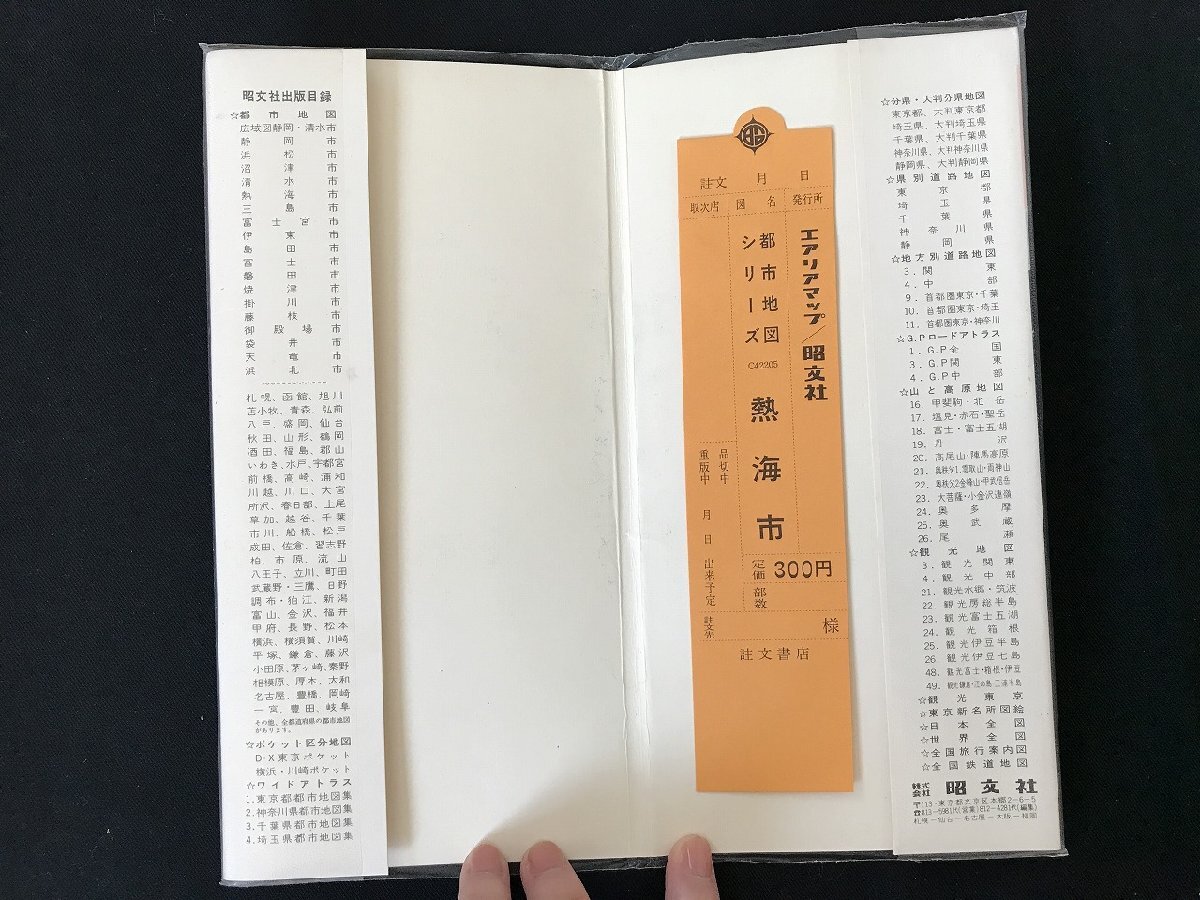 昭文社出版目録
☆都市地図
広域図静岡・清水市
静岡市
浜松市
沼津市
清水市
熱海市
三島市
富士宮市
伊東市
島田市
富士市
磐田市
焼津市
掛川市
藤枝市
御殿場市
袋井市
天竜市
浜北市
札幌、函館、旭川
苫小牧、青森、弘前
八戸、盛岡、仙台
秋田、山形、鶴岡
酒田、福島、郡山
いわき、水戸、宇都宮
前橋、高崎、浦和
川越、川口、大宮
所沢、春日部、上尾
草加、越谷、千葉
市川、船橋、松戸
成田、佐倉、習志野
柏、市原、流山
八王子、立川、町田
武蔵野・三鷹、日野
調布・狛江、新潟
富山、金沢、福井
甲府、長野、松本
横浜、横須賀、川崎
平塚、鎌倉、藤沢
小田原、茅ヶ崎、秦野
相模原、厚木、大和
名古屋、豊橋、岡崎
一宮、豊田、岐阜
その他、全都道府県の都市地図
があります。
☆ポケット区分地図
D・X東京ポケット
横浜・川崎ポケット
☆ワイドアトラス
1.東京都都市地図集
2.神奈川県都市地図集
3.千葉県都市地図集
4.埼玉県都市地図集
註文 月 日
取次店 図名 発行所
エアリアマップ/昭文社
都市地図
シリーズ
C42205
熱海市
定価 300円
部数
品切中
重版中
月 日 出来予定
註文先
様
註文書店
☆分県・大判分県地図
東京都、大判東京都
埼玉県、大判埼玉県
千葉県、大判千葉県
神奈川県、大判神奈川県
静岡県、大判静岡県
☆県別道路地図
東京都
埼玉県
千葉県
神奈川県
静岡県
☆地方別道路地図
3.関東
4.中部
9.首都圏東京・千葉
10.首都圏東京・埼玉
11.首都圏東京・神奈川
☆G.Pロードアトラス
1.G.P全国
3.G.P関東
4.G.P中部
☆山と高原地図
16.甲斐駒・北岳
17.塩見・赤石・聖岳
18.富士・富士五湖
19.丹沢
20.高尾山・陣馬高原
21.奥秩父1.雲取山・両神山
22.奥秩父2金峰山・甲武信岳
23.大菩薩・小金沢連嶺
24.奥多摩
25.奥武蔵
26.尾瀬
☆観光地区
3.観光関東
4.観光中部
21.観光水郷・筑波
22.観光房総半島
23.観光富士五湖
24.観光箱根
25.観光伊豆半島
26.観光伊豆七島
48.観光富士・箱根・伊豆
49.観光鎌倉・江の島・三浦半島
☆観光東京
☆東京新名所図絵
☆日本全図
☆世界全図
☆全国旅行案内図
☆全国鉄道地図
株式会社 昭文社
〒113・東京都文京区本郷2-6-5
☎813-5981代(営業)812-4281代(編集)
札幌―仙台―名古屋―大阪―福岡